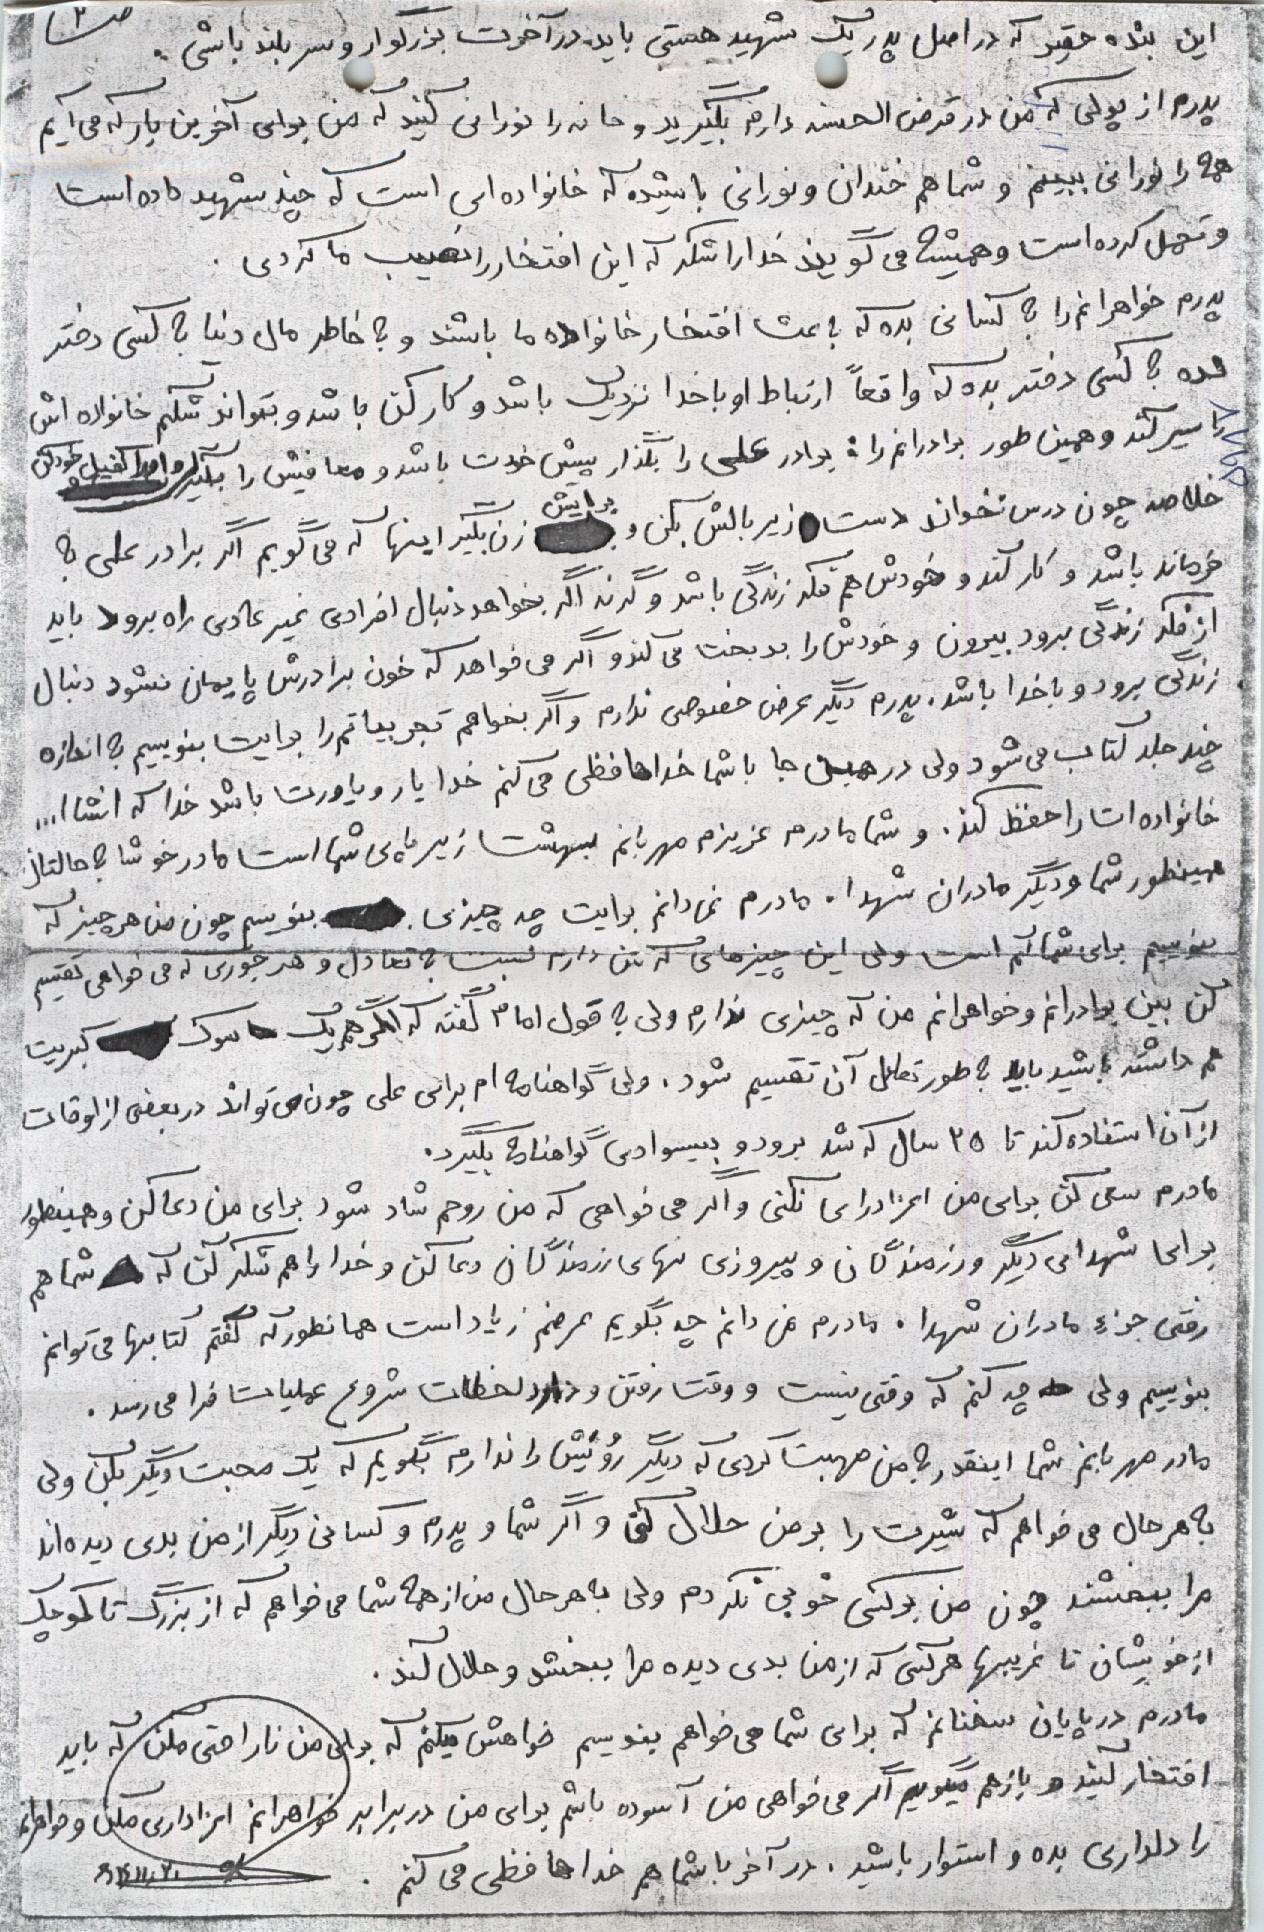 ص ۲
این بنده حقیر که در اصل پدر یک شهید هستی باید در آخرت بزرگوار و سر بلند باشی .
پدرم از پولی که من در قرض الحسنه دارم بگیرید و خانه را نورانی کنید که من برای آخرین بار که می آیم
همه را نورانی ببینم و شما هم خندان و نورانی باشید که خانواده ای است که چند شهید داده است
و تحمل کرده است و همیشه می گویند خدا را شکر که این افتخار را نصیب ما کردی .
پدرم خواهرانم را به کسانی بده که باعث افتخار خانواده ما باشند و به خاطر مال دنیا به کسی دختر
نده به کسی دختر بده که واقعاً ارتباط او با خدا نزدیک باشد و کار کن باشد و بتواند شکم خانواده اش
را سیر کند و همین طور برادرانم را : برادر علی را بگذار پیش خودت باشد و معافیش را بگیر و او را کفیل خود کن
خلاصه چون درس نخواند دست زیر بالش بکن و برایش زن بگیر اینها که می گویم اگر برادر علی به
فرماند باشد و کار کند و خودش هم فکر زندگی باشد و گرنه اگر بخواهد دنبال افرادی غیر عادی راه برود باید
از فکر زندگی برود بیرون و خودش را بدبخت می کند و اگر می خواهد که خون برادرش پایمان نشود دنبال
زندگی برود و با خدا باشد . پدرم دیگر عرض خصوصی ندارم و اگر بخواهم تجربیاتم را برایت بنویسیم به اندازه
چند جلد کتاب می شود ولی در همین جا با شما خداحافظی می کنم خدا یار و یاورت باشد خدا که انشاا...
خانواده ات را حفظ کند . و شما مادرم عزیزم مهربانم بهشت زیر پای شما است مادر خوشا به حالتان
همینطور شما و دیگر مادران شهدا . مادرم نمی دانم برایت چه چیزی بنویسم چون من هر چیز که
بنویسیم برای شما کم است ولی این چیزهای که من دارم نسبت به تعادل و هر جوری که می خواهی تقسیم
کن بین برادرانم و خواهرانم من که چیزی ندارم ولی به قول امام گفته که اگر هم یک سوک کبریت
هم داشته باشید باید به طور تعادل آن تقسیم شود . ولی گواهنامه ام برای علی چون می تواند در بعضی از اوقات
از آن استفاده کند تا ۲۵ سال که شد برود و بیسوادی گواهنامه بگیرد .
مادرم سعی کن برای من اعزاداری نکنی و اگر می خواهی که من روحم شاد شود برای من دعا کن و همینطور
برای شهدای دیگر و رزمندگان و پیروزی نهای رزمندگان دعا کن و خدا را هم شکر کن که شما هم
رفتی جزء مادران شهدا . مادرم نمی دانم چه بگویم عرضم زیاد است همانطور که گفتم کتابها می توانم
بنویسیم ولی چه کنم که وقتی نیست و وقت رفتن و لحظات شروع عملیات فرا می رسد .
مادر مهربانم شما اینقدر به من مهبت کردی که دیگر روئیش را ندارم بگویم که یک محبت دیگر بکن ولی
به هر حال می خواهم که شیرت را بر من حلال کنی و اگر شما و پدرم و کسانی دیگر از من بدی دیده اند
مرا ببخشند چون من بر کسی خوبی نکردم ولی به هر حال من از همه شما می خواهم که از بزرگ تا کوچک
از خویشان تا غریبها هر کسی که از من بدی دیده مرا ببخشد و حلال کند .
مادرم در پایان سخنانم که برای شما می خواهم بنویسم خواهش میکنم که برای من ناراحتی مکن که باید
افتخار کنید و بازهم میگویم اگر می خواهی من آسوده باشم برای من در برابر خواهرانم اعزاداری مکن و خواهرانم
را دلداری بده و استوار باشید . در آخر با شما هم خداحافظی می کنم .